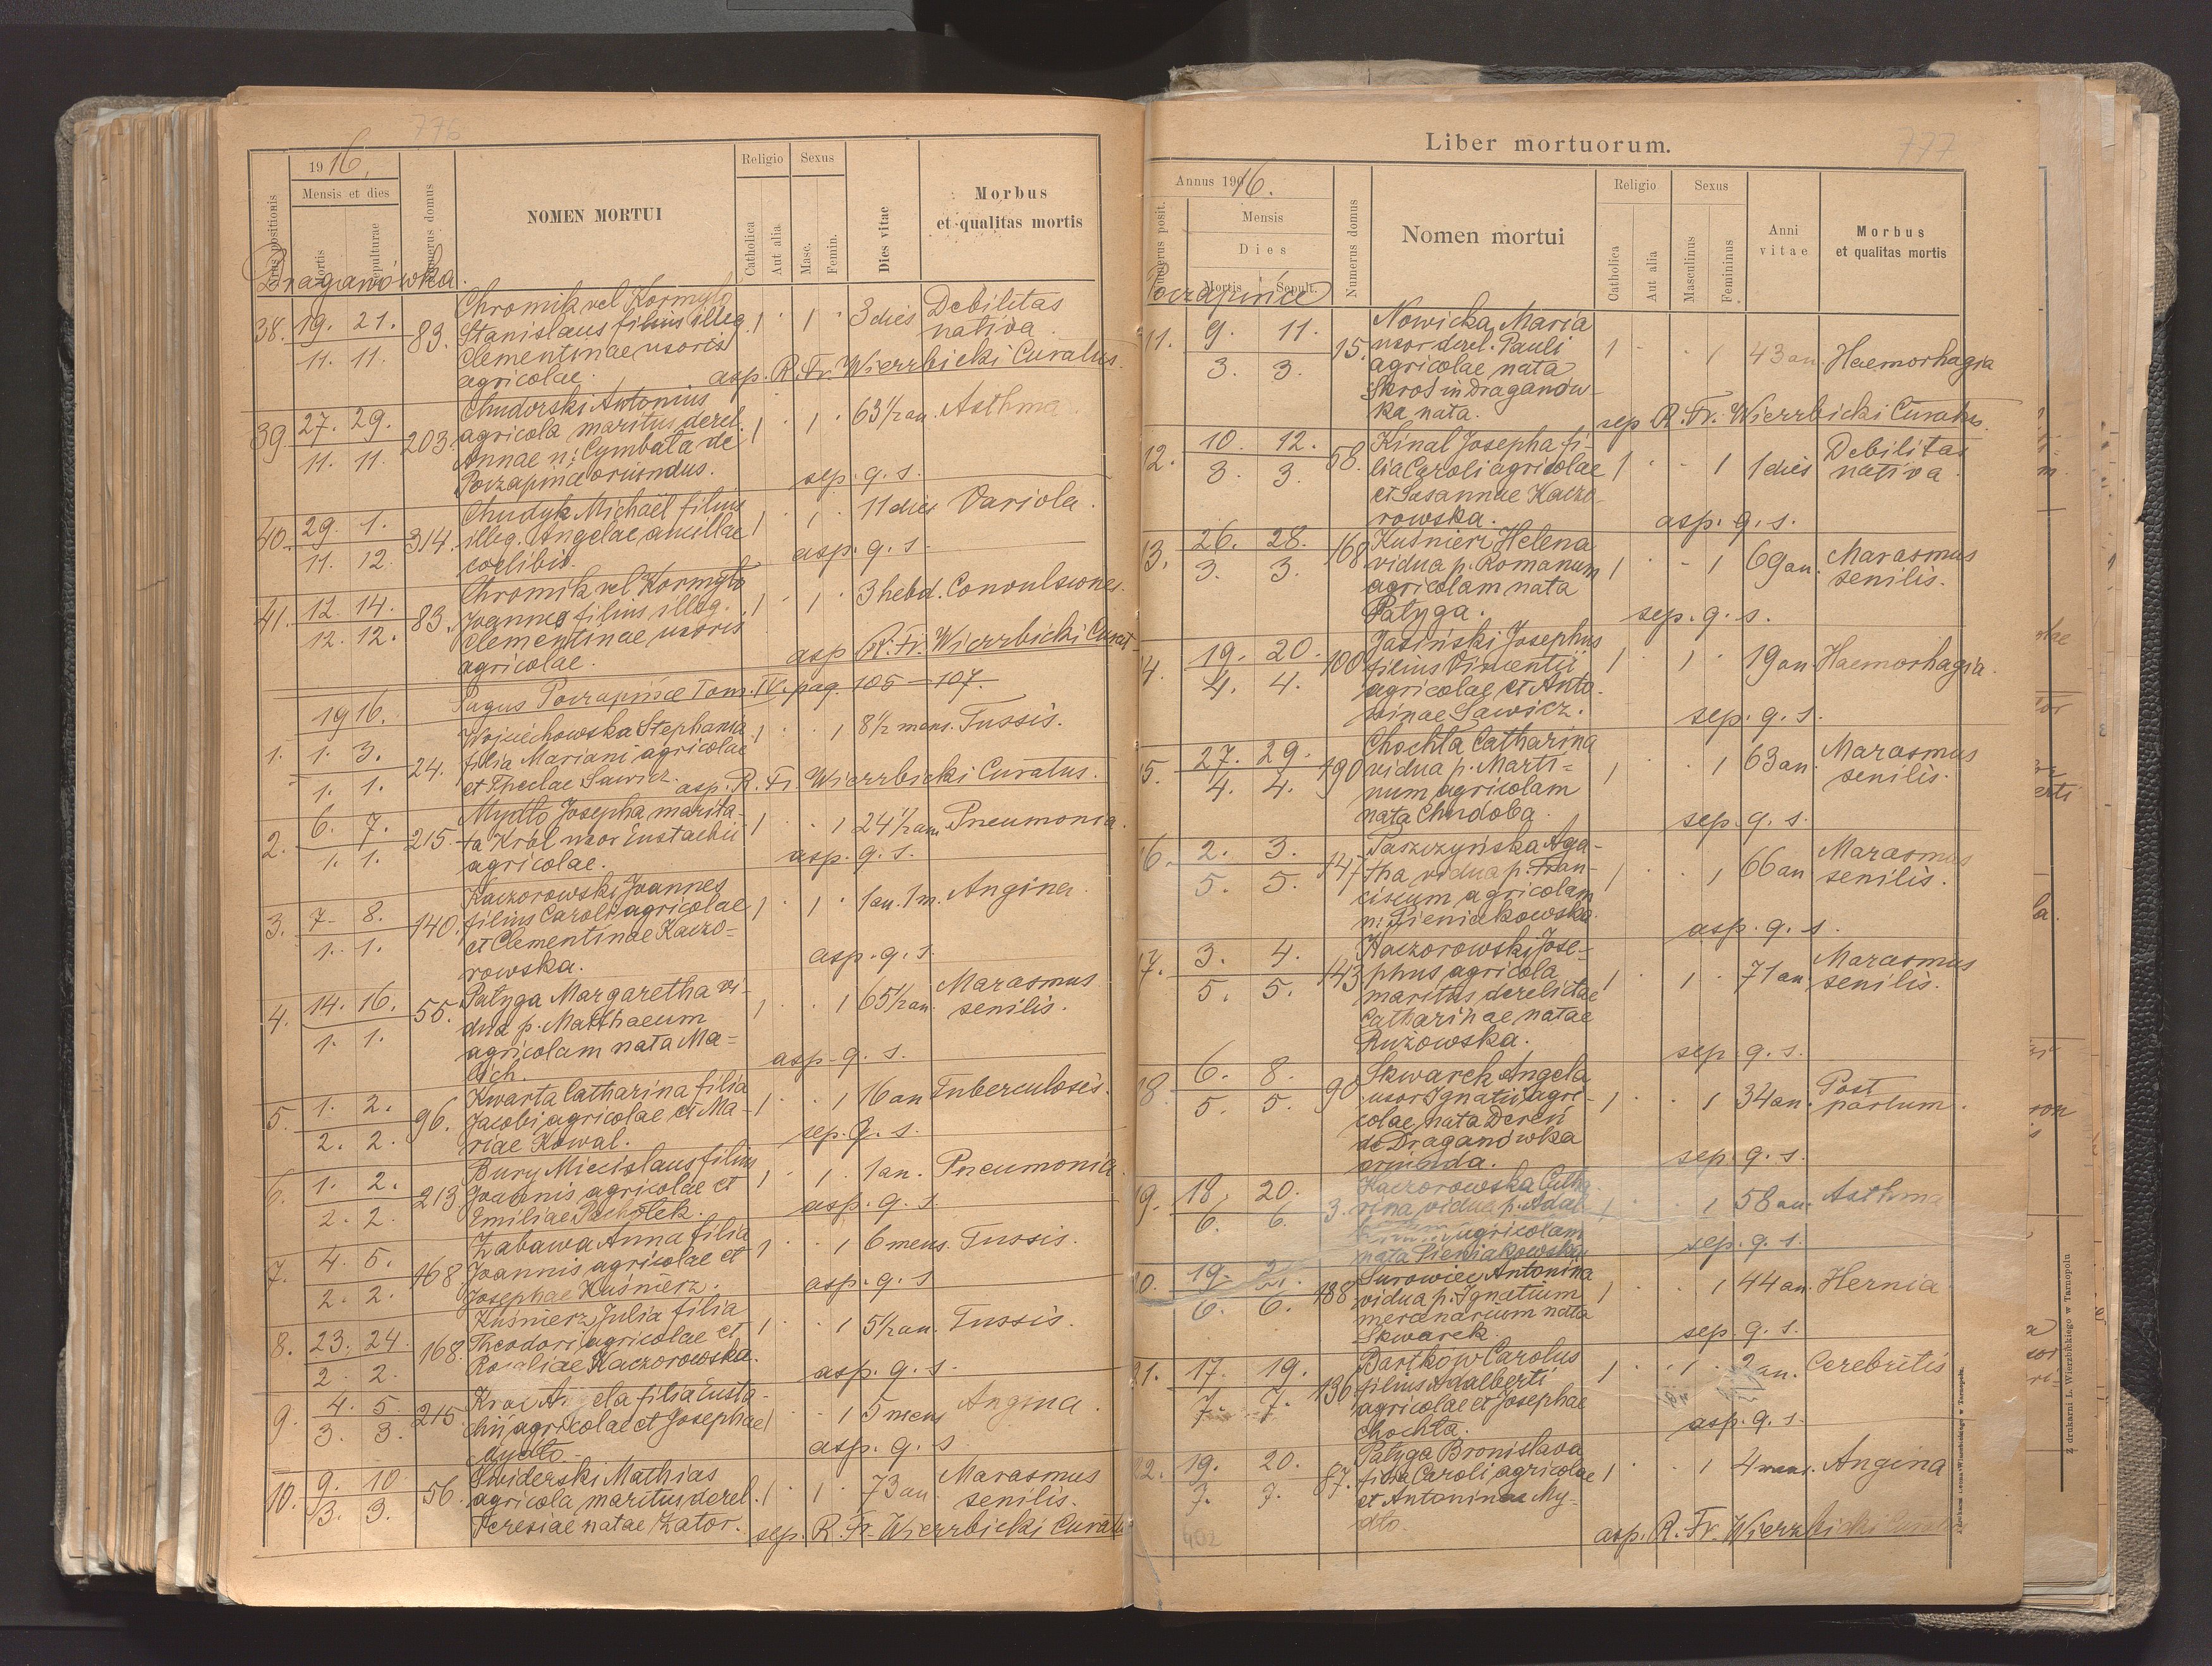 776
1916.
Numerus positionis
Mensis et dies
mortis
sepulturae
Numerus domus
NOMEN MORTUI
Religio
Catholica
Aut alia
Sexus
Masc.
Femin.
Dies vitae
Morbus
et qualitas mortis
Draganówka.
38. 19. 21. 83. Chromik vel Kormyło 1 · 1 · 3 dies Debilitas
11. 11. Stanislaus filius illeg. nativa.
Clementinae uxoris
agricolae. asp. R. Fr. Wierzbicki Curatus.
39. 27. 29. 203. Chudorski Antonius 1 · 1 · 63 1/2 an. Asthma.
11. 11. agricola maritus derel.
Annae n: Cymbała de
Poczapińce oriundus. sep. q. s.
40. 29. 1. 314. Chudyk Michaël filius 1 · 1 · 11 dies Variola.
11. 12. illeg. Angelae ancillae
coelibis. asp. q. s.
41. 12. 14. 83. Chromik vel Kormyło 1 · 1 · 3 hebd. Convulsiones.
12. 12. Joannes filius illeg.
Clementinae uxoris
agricolae. asp R. Fr. Wierzbicki Curat
Pagus Poczapińce Tom. IV. pag. 105-107.
1916.
1. 1. 3. 24. Wojciechowska Stephania 1 · · 1 8 1/2 mens. Tussis.
1. 1. filia Mariani agricolae
et Theclae Sawicz. asp. R. Fr. Wierzbicki Curatus.
2. 6. 7. 215. Mydło Josepha marita- 1 · · 1 24 1/2 an. Pneumonia.
1. 1. ta Król uxor Eustachii
agricolae. asp. q. s.
3. 7. 8. 140. Kaczorowski Joannes 1 · 1 · 1 an. 1 m. Angina.
1. 1. filius Caroli agricolae
et Clementinae Kaczo-
rowska. asp. q. s.
4. 14. 16. 55. Pałyga Margaretha vi- 1 · · 1 65 1/2 an. Marasmus
1. 1. dua p. Matthaeum senilis.
agricolam nata Ma-
asp. q. s.
5. 1. 2. 96. Kwarta Catharina filia 1 · · 1 16 an Tuberculosis.
2. 2. Jacobi agricolae et Ma-
riae Kowal. sep. q. s.
6. 1. 2. 213. Bury Miecislaus filius 1 · 1 · 1 an. Pneumonia.
2. 2. Joannis agricolae et
Emiliae Pachołek. asp. q. s.
7. 4. 5. 168. Zabawa Anna filia 1 · · 1 6 mens. Tussis.
2. 2. Joannis agricolae et
Josephae Kuśnierz. asp. q. s
8. 23. 24. 168. Kuśnierz Julia filia 1 · · 1 5 1/2 an. Tussis.
2. 2. Theodori agricolae et
Rosaliae Kaczorowska. asp. q. s.
9. 4. 5. 215. Angela filia Eusta- 1 · · 1 5 mens Angina.
3. 3. chii agricolae et Josephae
Mydło. asp. q. s
10. 9. 10. 56. Świderski Mathias 1 · 1 · 73 an. Marasmus
3. 3. agricola maritus derel. senilis.
Teresiae natae Zator. sep. R. Fr. Wierzbicki Curatu
Liber mortuorum.
777
Annus 1916.
Numerus posit.
Mensis
Dies
Mortis
Sepult.
Numerus domus
Nomen mortui
Religio
Catholica
Aut alia
Sexus
Masculinus
Femininus
Anni
vitae
Morbus
et qualitas mortis
Poczapińce
11. 9. 11. 15. Nowicka Maria 1 · · 1 43 an. Haemorhagia
3. 3. uxor derel. Pauli
agricolae nata
Skroś in Draganów-
ka nata. sep R. Fr. Wierzbicki Curatus.
12. 10. 12. 58. Kinal Josepha fi- 1 · · 1 1 dies Debilitas
3. 3. lia Caroli agricolae nativa.
et Susannae Kaczo-
rowska. asp. q. s.
13. 26. 28. 168 Kuśnierz Helena 1 · · 1 69 an. Marasmus
3. 3. vidua p. Romanum senilis.
agricolam nata
Pałyga. sep. q. s.
14. 19. 20. 100 Jasiński Josephus 1 · 1 · 19 an Haemorhagia.
4. 4. filius Vincentii
agricolae et Anto-
ninae Sawicz. sep. q. s.
15. 27. 29. 190 Chochla Catharina 1 · · 1 63 an. Marasmus
4. 4. vidua p. Marti= senilis.
num agricolam
nata Chudoba. sep. q. s.
16. 2. 3. 147 Paszczyńska Aga- 1 · · 1 66 an Marasmus
5. 5. tha vidua p. Fran- senilis.
ciscum agricolam
n: Sieniakowska. asp. q. s.
17. 3. 4. 143 Kaczorowski Jose- 1 · 1 · 71 an. Marasmus
5. 5. phus agricola senilis.
maritus derelictae
Catharinae natae
Rużowska. sep. q. s.
18. 6. 8. 90 Skwarek Angela 1 · · 1 34 an. Post
5. 5. uxor Ignatii agri- partum.
colae nata Dereń
de Draganówka
oriunda. sep. q. s.
19. 18. 20. 3. Kaczorowska Catha- 1 · · 1 58 an. Asthma
6. 6. rina vidua p. Adal-
agricolam
nata Sieniakowska sep. q. s.
20. 19. 21. 188 Surowiec Antonina 1 · · 1 44 an. Hernia
6. 6. vidua p. Ignatium
mercenarium nata
Skwarek. sep. q. s.
21. 17. 19. 136 Bartków Carolus 1 · 1 · 2 an. Cerebritis
7. 7. filius Adalberti
agricolae et Josephae
Chochla. asp. q. s.
22. 19. 20. 87. Pałyga Bronislava 1 · · 1 4 mens. Angina
7. 7. filia Caroli agricolae
et Antoninae My-
dło. asp. R. Fr. Wierzbicki Curat
402
Z drukarni L. Wierzbickiego w Tarnopolu